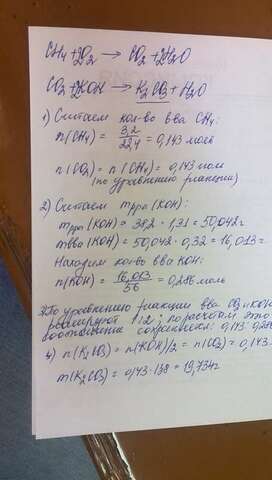 CH₄ + 2O₂ → CO₂ + 2H₂O
CO₂ + 2KOH → K₂CO₃ + H₂O
1) Считаем кол-во в-ва CH₄:
n(CH₄) = 3,2/22,4 = 0,143 молев
n(CO₂) = n(CH₄) = 0,143 мол
(по уравнению реакции)
2) Считаем mрра (KOH):
mрра (KOH) = 38,2 · 1,31 = 50,042г
mв-ва (KOH) = 50,042 · 0,32 = 16,013 г
Находим кол-во в-ва KOH:
n(KOH) = 16,013/56 = 0,286 моль
3) По уравнению реакции в-ва CO₂ и KOH
реагируют 1:2; по расчётам это
соотношение сохраняется: 0,143 : 0,286
4) n(K₂CO₃) = n(KOH)/2 = n(CO₂) = 0,143
m(K₂CO₃) = 0,143 · 138 = 19,734г